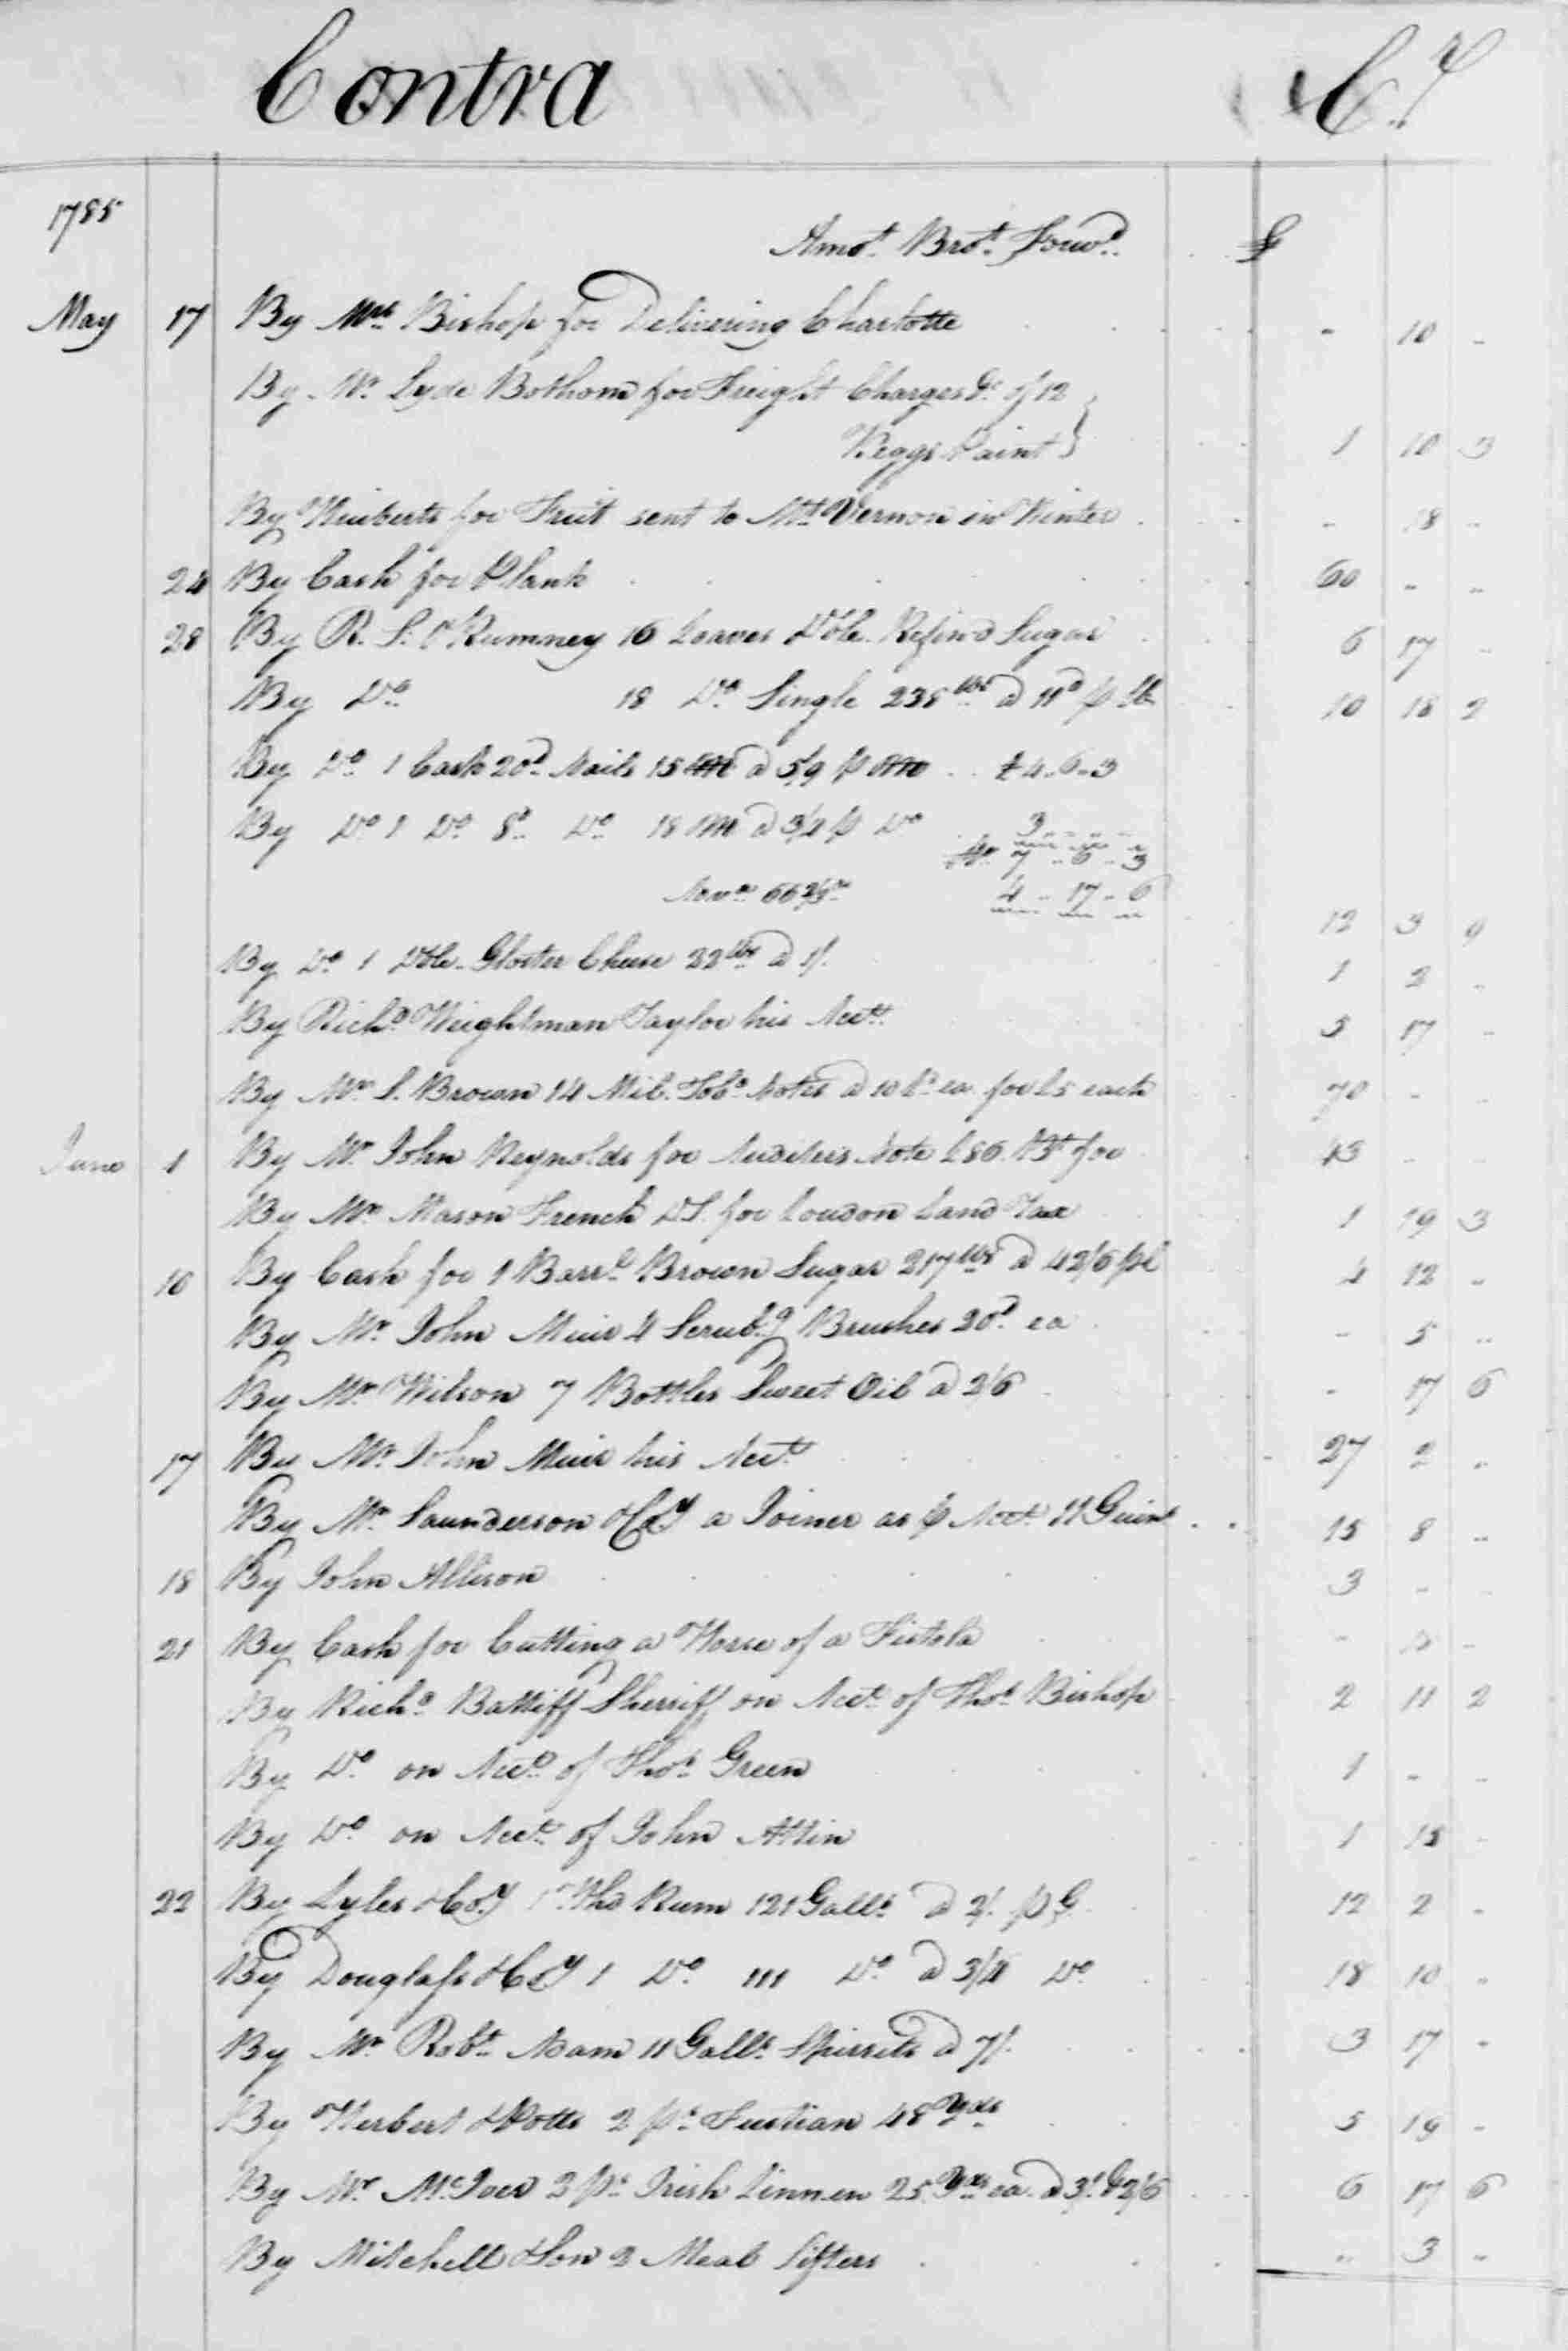 Contra Cr.
1785
Amot. Brot. Forwd. £
May 17 By Mrs. Bishop for Delivering Charlotte " 10 "
By Mr. Lyde Bothom for Freight Charges &c of 12
Keggs Paint } 1 10 3
By for Fruit sent to Mt. Vernon in Winter " 18 "
24 By Cash for Plank 60 " "
28 By Rumney 16 Loaves Dble. Refind Sugar 6 17 "
By Do. 18 Do. Single 238 lbs. a 11d p lb 10 18 2
By Do. 1 Cask 20d. Nails 15 M a 5/9 p M £4 " 6 " 3
By Do. 1 Do. 8d. Do. 18 M a 3/4 p Do 3 " " " "
7 " 6 " 3
66 2/3 4 " 17 " 6
12 3 9
By Do. 1 Dble. Gloster Cheese 22 lbs. a 1/. 1 2 "
By Richd. Weightman Taylor his Acct. 5 17 "
By Mr. S. Brown 14 Mil. Tobo. Notes a 10 Ds. ea for £5 each 70 " "
June 1 By Mr. John Reynolds for Auditers Note £86 for 43 " "
By Mr. Mason French D.S. for Loudon Land Tax 1 19 3
16 By Cash for 1 Barrl. Brown Sugar 217 lbs. a 42/6 p C 4 12 "
By Mr. John Muir 4 Scrubg. Brushes 20d. ea " 5 "
By Mr. Wilson 7 Bottles Sweet Oil a 2/6 " 17 6
17 By Mr. John Muir his Acct. 27 2 "
By Mr. Saunderson & Coy a Joiner as p Acct. 11 Guins. 15 8 "
18 By John Allison 3 " "
21 By Cash for Cutting a Horse of a Fistola "
By Richd. Battiff Sherriff on Acct. of Thos. Bishop 2 11 2
By Do. on Acct. of Thos. Green 1 " "
By Do. on Acct. of John Attin 1 15 "
22 By Lyles & Coy. 1 Hhd Rum 121 Galls. a 2/. p G. 12 2 "
By Douglass & Coy 1 Do. 111 Do. a 3/4 Do. 18 10 "
By Mr. Robt. Adam 11 Galls. Spirrits a 7/. 3 17 "
By Herbert & Potts 2 ps. Fustian 48 Yds. 5 19 "
By Mr. McIver 2 ps. Irish Linnen 25 Yds. ea. a 3/. & 2/6 6 17 6
By Mitchell & Son 2 Meal Sifters " 3 "